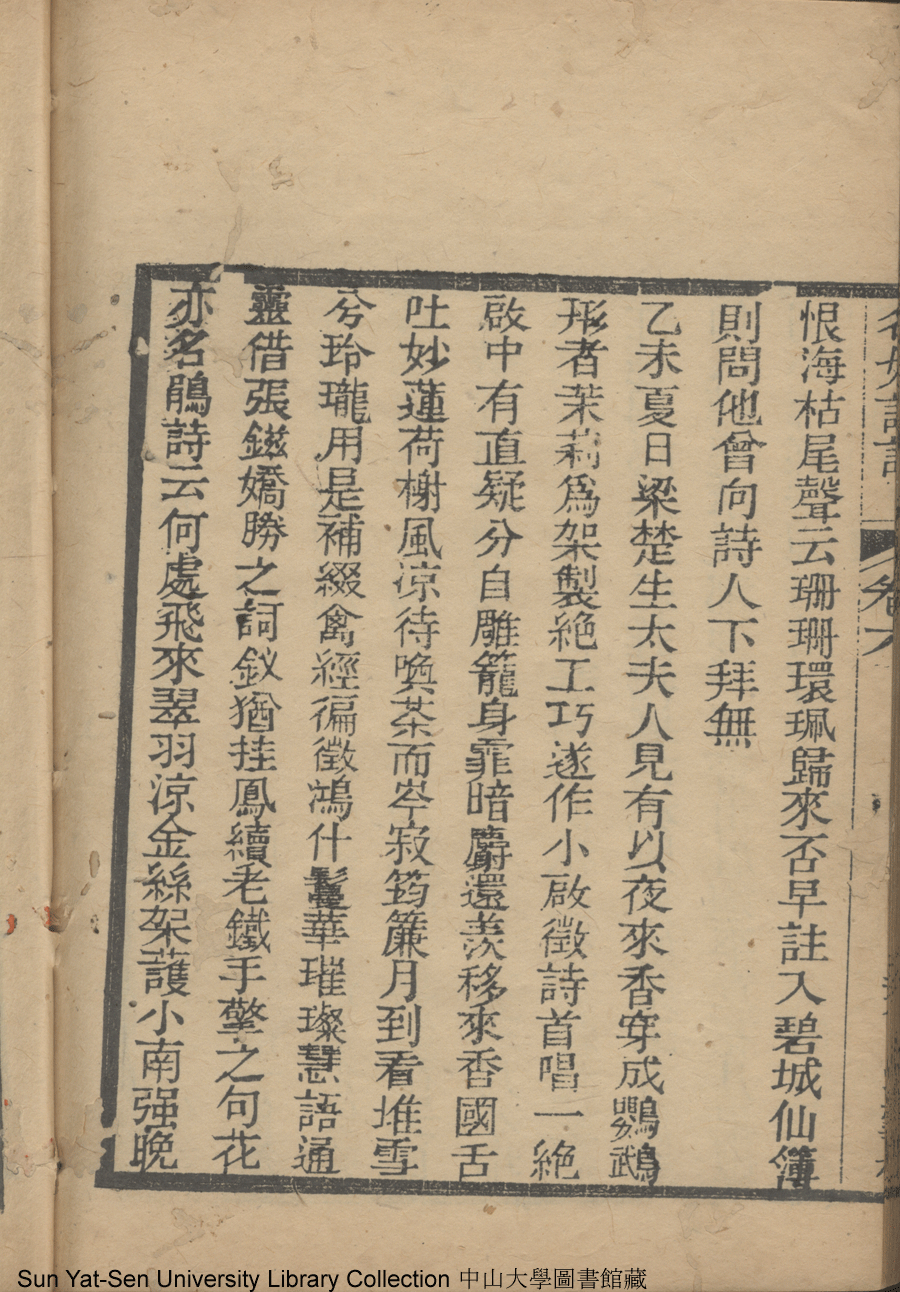 名媛詩話 卷六
恨海枯尾聲云珊珊環珮歸來否早註入碧城仙簿
則問他曾向詩人下拜無
乙未夏日梁楚生太夫人見有以夜來香穿成鸚鵡
形者茉莉爲架製絶工巧遂作小啟徵詩首唱一絶
啟中有直疑分自雕籠身霏暗麝還羨移來香國舌
吐妙蓮荷榭風涼待喚茶而岑寂筠簾月到看堆雪
兮玲瓏用是補綴禽經徧徵鴻什鬘華璀璨慧語通
靈借張鎡嬌勝之詞釵猶挂鳳續老鐵手擎之句花
亦名鵑詩云何處飛來翠羽涼金絲架護小南强晚
Sun Yat-Sen University Library Collection 中山大學圖書館藏